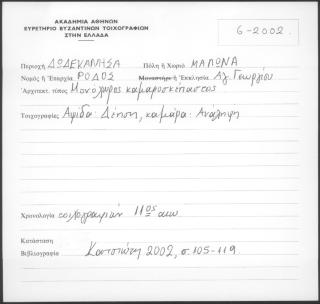 ΑΚΑΔΗΜΙΑ ΑΘΗΝΩΝ
ΕΥΡΕΤΗΡΙΟ ΒΥΖΑΝΤΙΝΩΝ ΤΟΙΧΟΓΡΑΦΙΩΝ
ΣΤΗΝ ΕΛΛΑΔΑ
6-2002
Περιοχή ΔΩΔΕΚΑΝΗΣΑ Πόλη ή Χωριό ΜΑΛΩΝΑ
Νομός ή Ἐπαρχία ΡΟΔΟΣ Μοναστήρι ή Ἐκκλησία Αγ. Γεωργίου
Ἀρχιτεκτ. τύπος Μονόχωρος καμαροσκέπαστος
Τοιχογραφίες Αψίδα: Δέηση, καμάρα: Ανάληψη
Χρονολογία τοιχογραφιών 11ος αιω.
Κατάσταση
Βιβλιογραφία 2002, σ. 105-119.